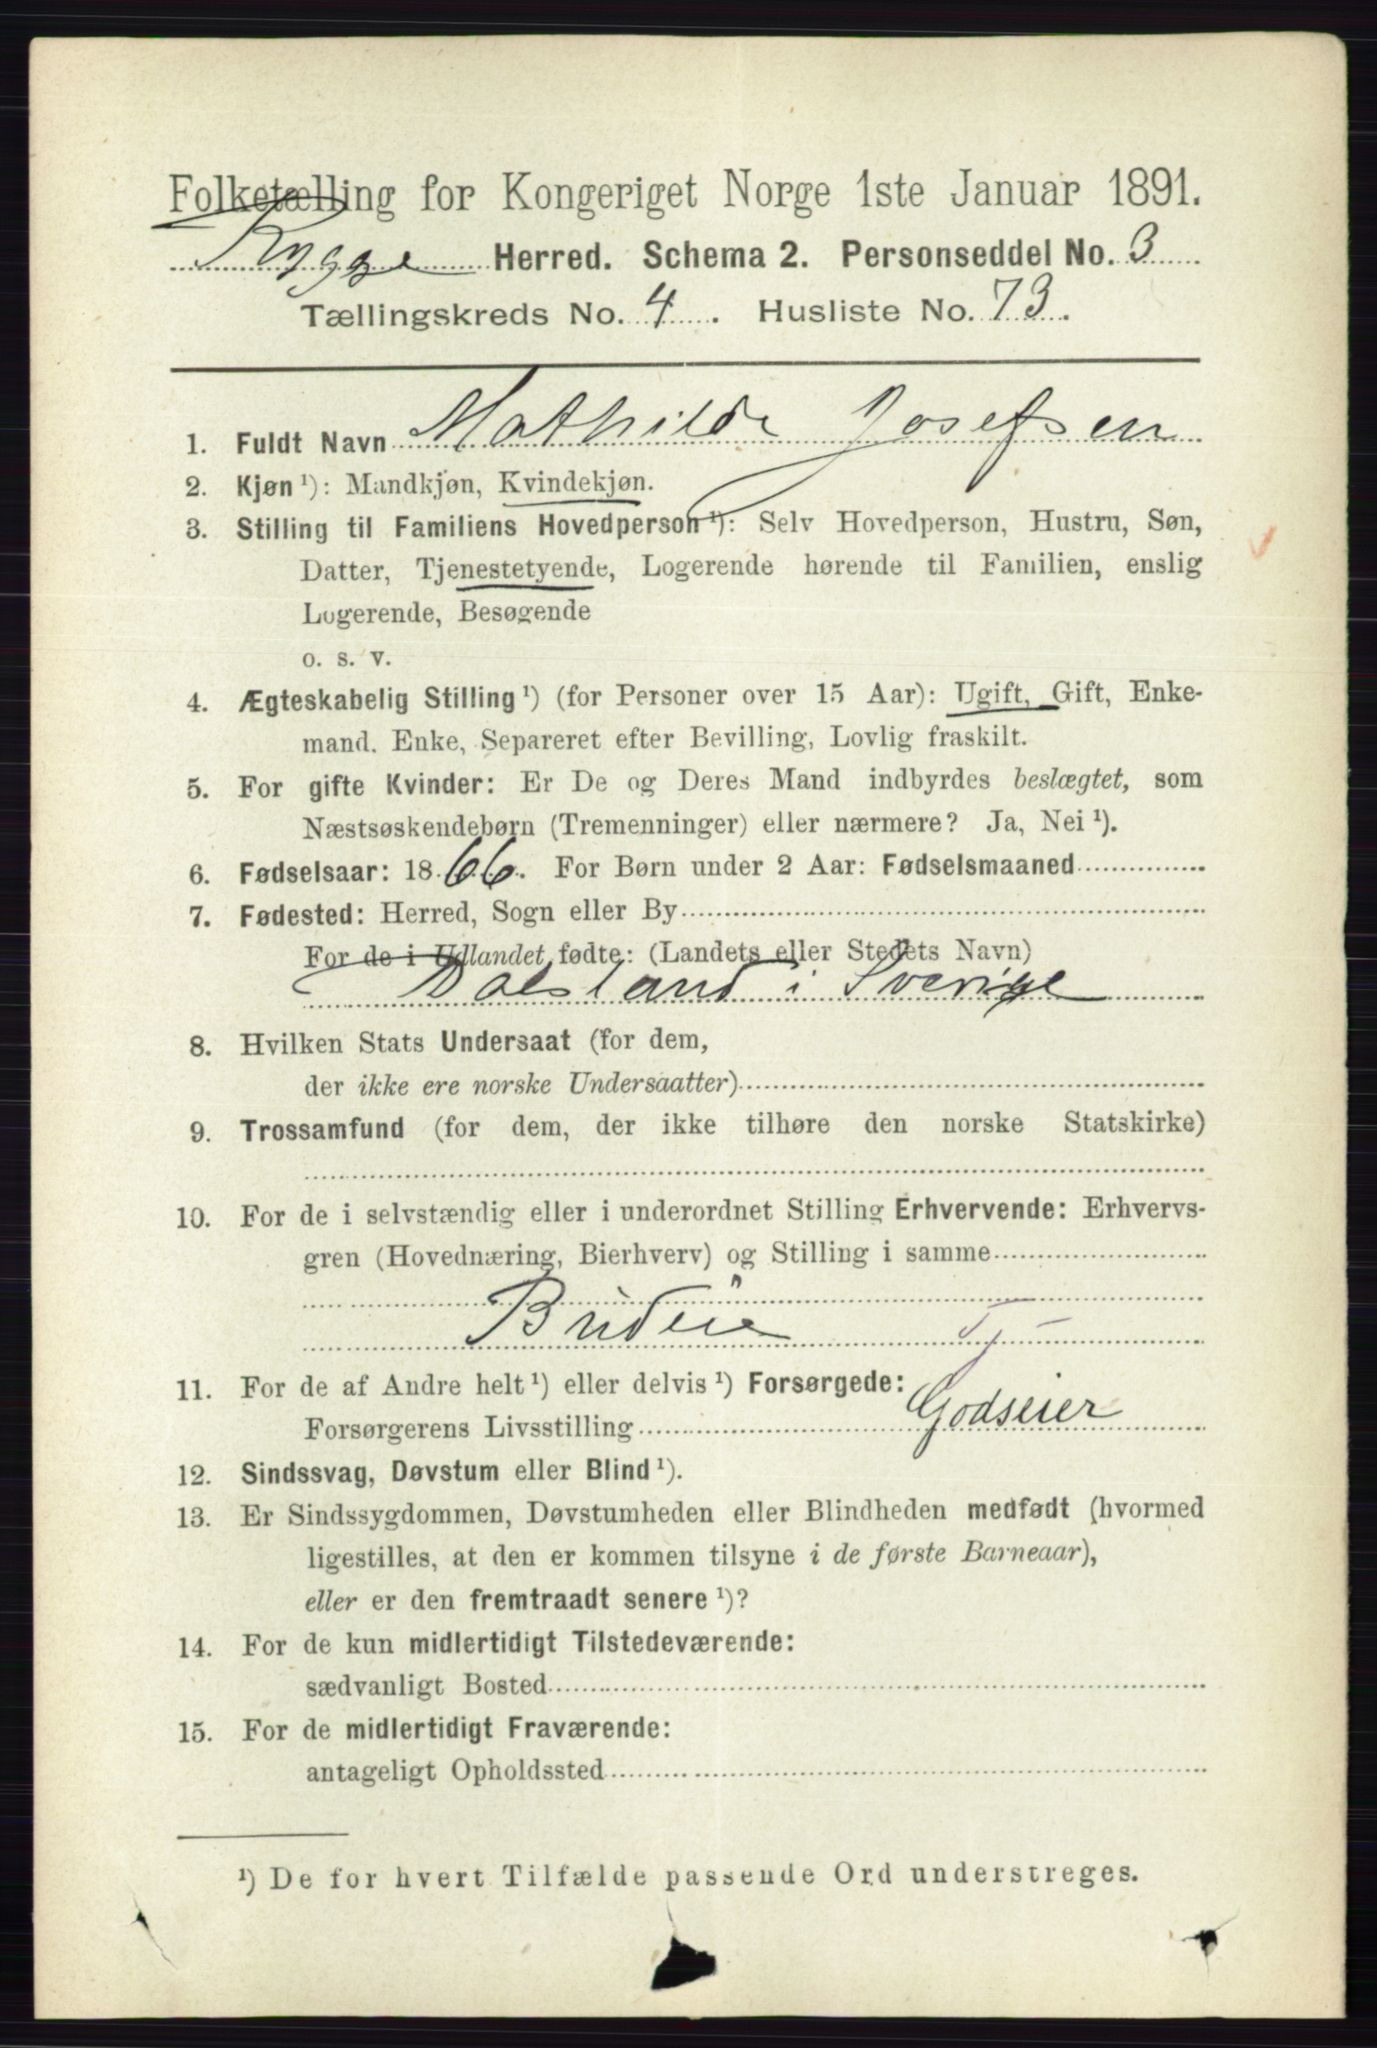 Folketælling for Kongeriget Norge 1ste Januar 1891.
Rygge Herred. Schema 2. Personseddel No. 3
Tællingskreds No. 4. Husliste No. 73.
1. Fuldt Navn Mathilde Josefsen
2. Kjøn ¹): Mandkjøn, Kvindekjøn.
3. Stilling til Familiens Hovedperson ¹): Selv Hovedperson, Hustru, Søn,
Datter, Tjenestetyende, Logerende hørende til Familien, enslig
Logerende, Besøgende
o. s. v.
4. Ægteskabelig Stilling ¹) (for Personer over 15 Aar): Ugift, Gift, Enke-
mand, Enke, Separeret efter Bevilling, Lovlig fraskilt.
5. For gifte Kvinder: Er De og Deres Mand indbyrdes beslægtet, som
Næstsøskendebørn (Tremenninger) eller nærmere? Ja, Nei ¹).
6. Fødselsaar: 1866. For Børn under 2 Aar: Fødselsmaaned
7. Fødested: Herred, Sogn eller By
For de i Udlandet fødte: (Landets eller Stedets Navn)
Dalsland i Sverige
8. Hvilken Stats Undersaat (for dem,
der ikke ere norske Undersaatter)
9. Trossamfund (for dem, der ikke tilhøre den norske Statskirke)
10. For de i selvstændig eller i underordnet Stilling Erhvervende: Erhvervs-
gren (Hovednæring, Bierhverv) og Stilling i samme
Budeie Tj
11. For de af Andre helt ¹) eller delvis ¹) Forsørgede:
Forsørgerens Livsstilling Godseier
12. Sindssvag, Døvstum eller Blind ¹).
13. Er Sindssygdommen, Døvstumheden eller Blindheden medfødt (hvormed
ligestilles, at den er kommen tilsyne i de første Barneaar),
eller er den fremtraadt senere ¹)?
14. For de kun midlertidigt Tilstedeværende:
sædvanligt Bosted
15. For de midlertidigt Fraværende:
antageligt Opholdssted
¹) De for hvert Tilfælde passende Ord understreges.